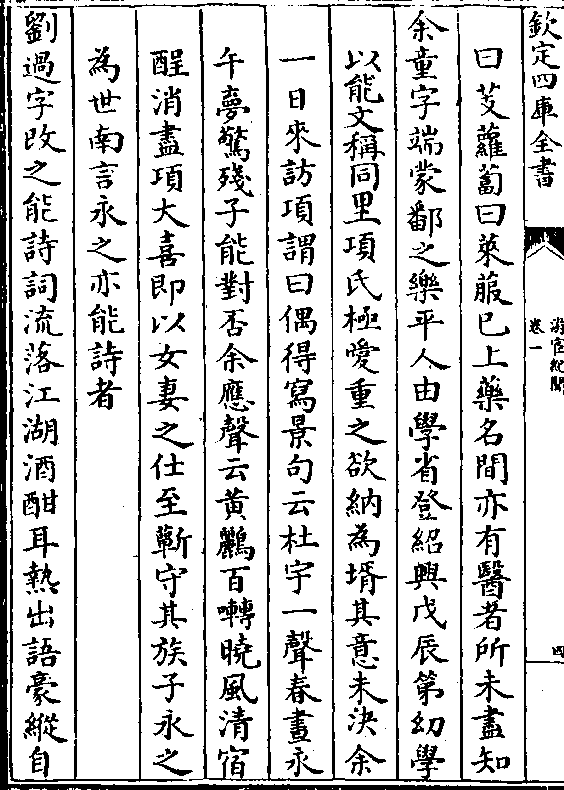 欽定四庫全書
游宦紀聞
卷一
四
曰芟蘿蔔曰萊菔已上藥名間亦有醫者所未盡知
余童字端蒙鄱之樂平人由學省登紹興戊辰第幼學
以能文稱同里項氏極愛重之欲納為壻其意未決余
一日來訪項謂曰偶得寫景句云杜宇一聲春晝永
午夢驚殘子能對否余應聲云黄鸝百囀曉風清宿
酲消盡項大喜即以女妻之仕至蘄守其族子永之
為世南言永之亦能詩者
劉過字改之能詩詞流落江湖酒酣耳熱出語豪縱自